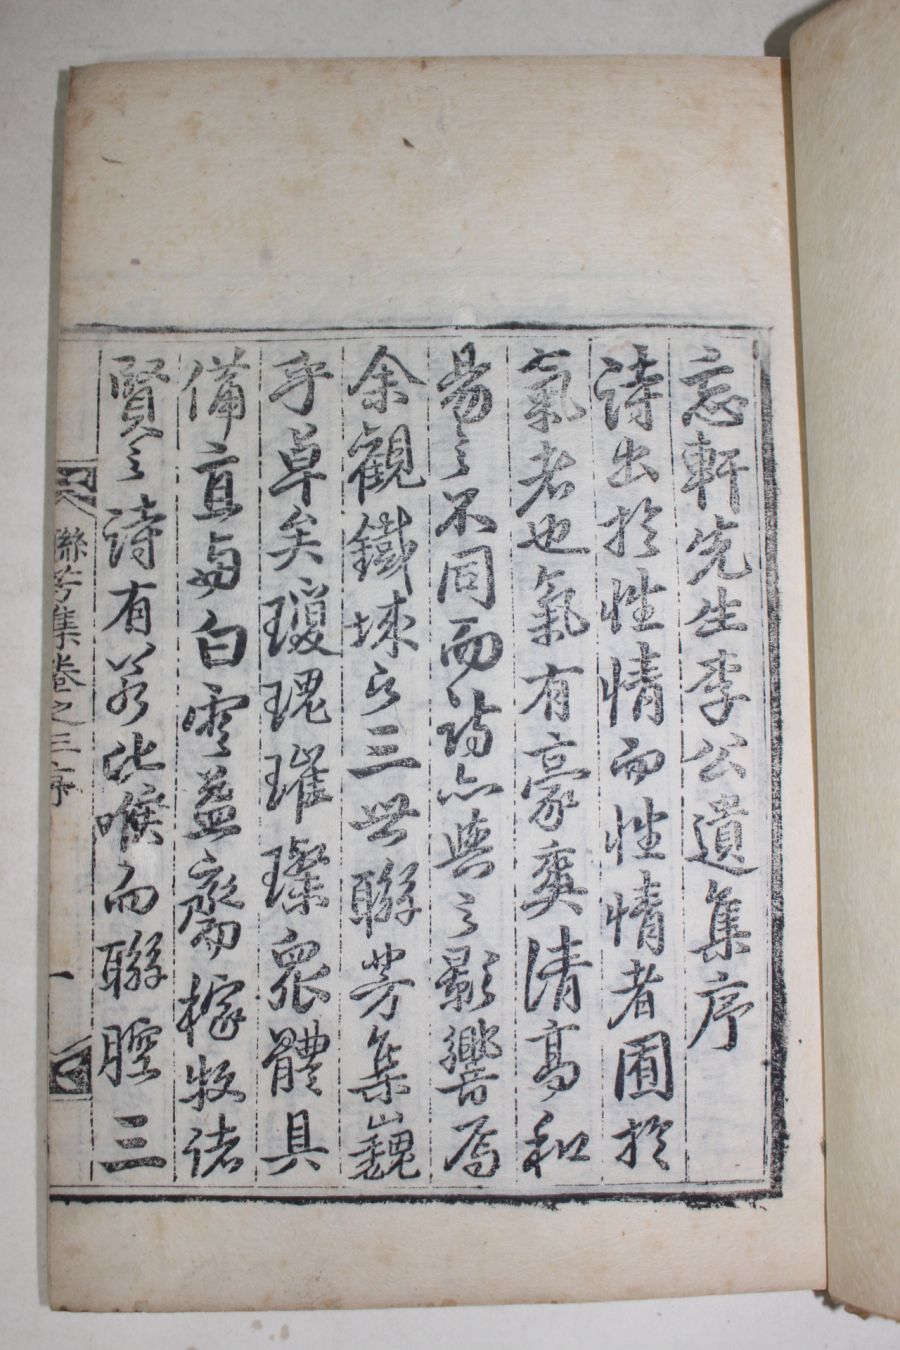 忘軒先生李公遺集序
詩出於性情而性情者囿於
氣者也氣有豪爽清高和
易之不同而詩亦與之影響焉
余觀鐵城氏三世聯芳集巍
乎卓矣瓊瑰璀璨衆體具
備直與白雲益齋稼牧諸
賢之詩有若比喉而聯腔三
聯芳集卷之三序
一